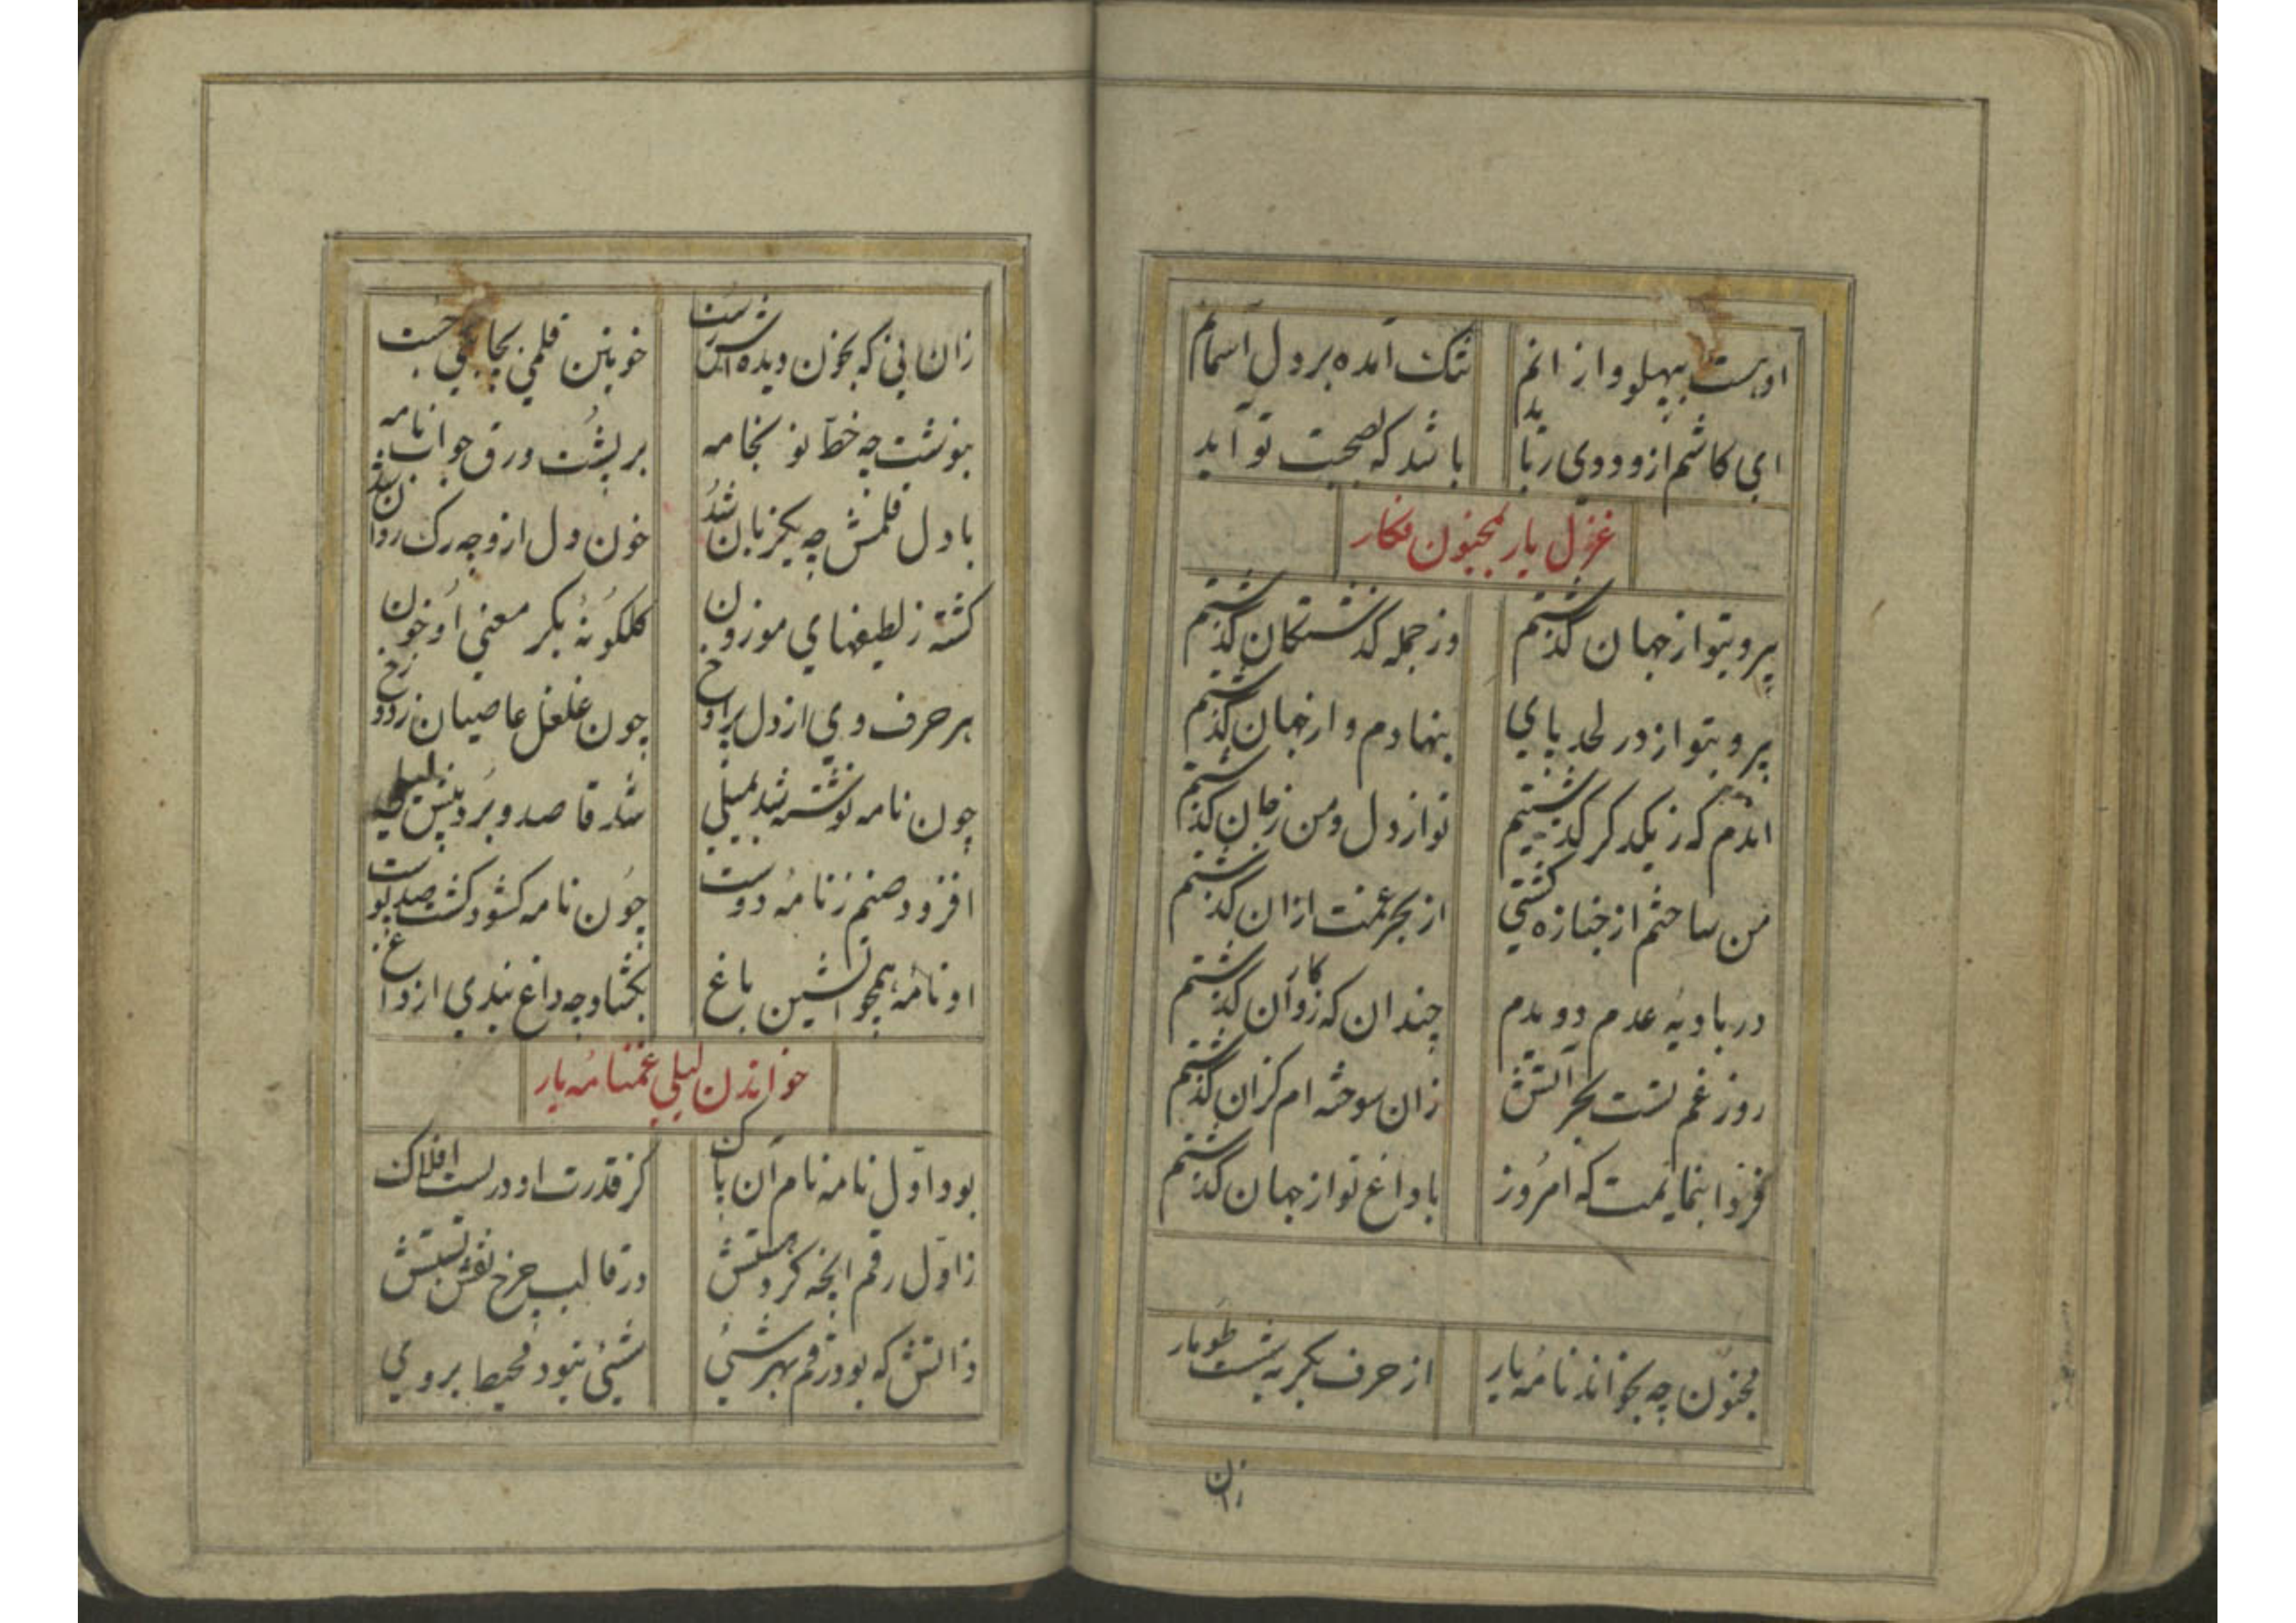 اوهست بپهلو وازانم تنک آمده بر دل آسمانم
ای کاشم از و ودی رباید باشد که بصحبت تو آید
غزل یار بمجنون فکار
پیرو بتو از جهان گذشتم وز جمله گذشتکان گذشتم
پیرو بتو از در لحد پای بنهادم و از جهان گذشتم
اندم که ز یکدکر گذشتیم تو از دل و من ز جان گذشتم
من ساختم از جنازه کشتی از بحر غمت ازان گذشتم
در بادیهٔ عدم دویدم چندان که ز کاروان گذشتم
روز غم تست بحر آتش زان سوخته ام کزان گذشتم
فردا بنمایمت که امروز با داغ تو از جهان گذشتم
مجنون چه بخواند نامهٔ یار از حرف بکر به پشت طومار
زان
زان نی که بخون دیده اش رست خونین قلمی بجابکی جست
بنوشت چه خط نو بخامه بر پشت ورق جواب نامه
با دل قلمش چه یکزبان شد خون دل از و چه رک روان شد
کشته ز لطیفهای موزون کلکونهٔ بکر معنی او خون
هر حرف وی از دل پر از چون غلغل عاصیان ز دوزخ
چون نامه نوشته شد بمیلی شد قاصد و برد پیش لیلی
افزود صنم ز نامهٔ دوست چون نامه کشود کشت صد پوست
او نامه همچو آتشین باغ بکشاد چه داغ پندی از داغ
خواندن لیلی غمنامهٔ یار
بود اول نامه نام آن پاک کز قدرت او درست افلاک
ز اول رقم انچه کرد هستش در قالب چرخ نقش بستش
ذاتش که بود رقم بهر شیئی شیئی نبود محیط بر وی